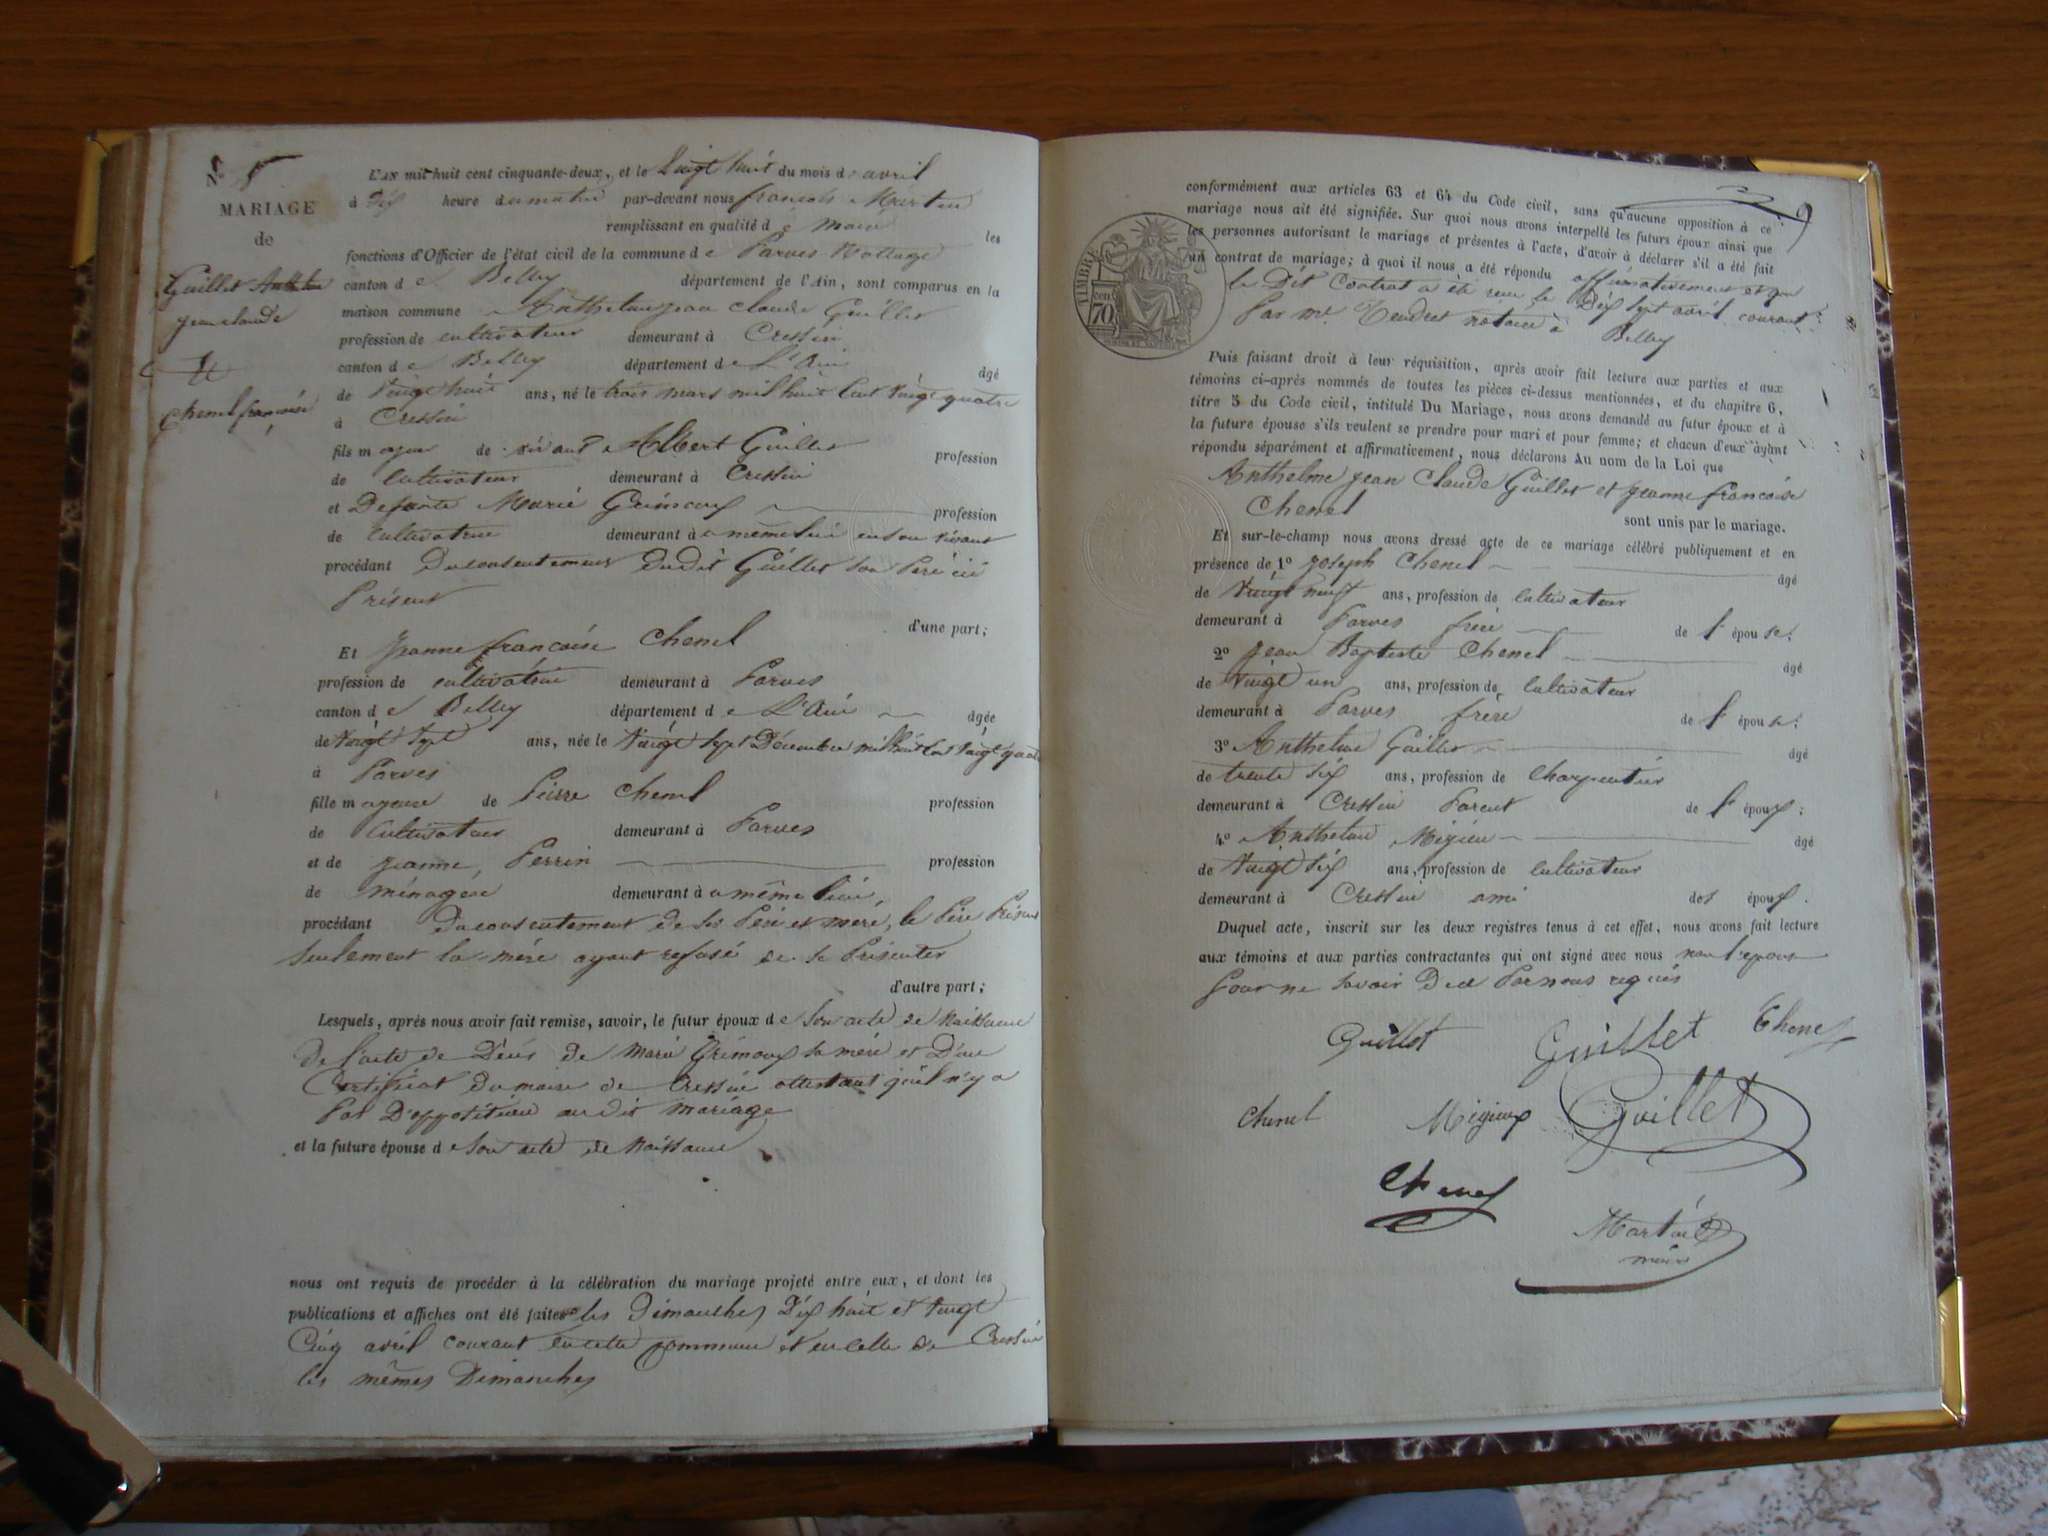 N° 5
MARIAGE
de
Guillet Anthelme
jean claude
Et
Chenel françoise
L'AN mil huit cent cinquante-deux, et le Vingt huit du mois d'avril
à dix heure du matin par-devant nous françois Martin
remplissant en qualité de Maire les
fonctions d'Officier de l'état civil de la commune de Parves Nattage
canton de Belley département de l'Ain, sont comparus en la
maison commune Anthelme jean claude Guillet
profession de cultivateur demeurant à Cressin
canton de Belley département de L'Ain âgé
de Vingt huit ans, né le trois mars mil huit Cent Vingt quatre
à Cressin
fils majeur de vivant Albert Guillet profession
de Cultivateur demeurant à Cressin
et Defunte Marie Grimoux profession
de Cultivatrice demeurant à même lieu en son vivant
procédant Du consentement Dudit Guillet Son Père ici
Présent
d'une part;
Et Jeanne françoise Chenel
profession de cultivatrice demeurant à Parves
canton de Belley département de L'Ain âgée
de Vingt Sept ans, née le Vingt Sept Décembre mil huit Cent Vingt quatre
à Parves
fille majeure de Pierre Chenel profession
de Cultivateur demeurant à Parves
et de jeanne Perrin profession
de ménagere demeurant à même lieu,
procédant Du consentement de ses Père et mère, le Père Présent
Seulement la mère ayant refusé de se Présenter
d'autre part;
Lesquels, après nous avoir fait remise, savoir, le futur époux de Son acte de Naissance
De l'acte de Décès de Marie Grimoux sa mère et D'un
Certificat du maire de Cressin attestant qu'il n'y a
Pas D'opposition au dit mariage
et la future épouse de Son acte de Naissance
nous ont requis de procéder à la célébration du mariage projeté entre eux, et dont les
publications et affiches ont été faites les Dimanches Dix huit et Vingt
Cinq avril courant en cette commune et en celle de Cressin
les mêmes Dimanches
9
TIMBRE
cen. 70
conformément aux articles 63 et 64 du Code civil, sans qu'aucune opposition à ce
mariage nous ait été signifiée. Sur quoi nous avons interpellé les futurs époux ainsi que
les personnes autorisant le mariage et présentes à l'acte, d'avoir à déclarer s'il a été fait
un contrat de mariage; à quoi il nous a été répondu affirmativement et que
le Dit Contrat a été reçu le Dix Sept avril courant
Par Me Tendret notaire à Belley
Puis faisant droit à leur réquisition, après avoir fait lecture aux parties et aux
témoins ci-après nommés de toutes les pièces ci-dessus mentionnées, et du chapitre 6,
titre 5 du Code civil, intitulé Du Mariage, nous avons demandé au futur époux et à
la future épouse s'ils veulent se prendre pour mari et pour femme; et chacun d'eux ayant
répondu séparément et affirmativement, nous déclarons Au nom de la Loi que
Anthelme jean Claude Guillet et jeanne françoise
Chenel sont unis par le mariage.
Et sur-le-champ nous avons dressé acte de ce mariage célébré publiquement et en
présence de 1° joseph Chenel âgé
de Vingt neuf ans, profession de Cultivateur
demeurant à Parves frère de l'épouse.
2° jean Baptiste Chenel âgé
de Vingt un ans, profession de Cultivateur
demeurant à Parves frère de l'épouse.
3° Anthelme Guillet âgé
de trente Six ans, profession de Charpentier
demeurant à Cressin Parent de l'époux;
4° Anthelme Migieux âgé
de Vingt Six ans, profession de Cultivateur
demeurant à Cressin ami des époux.
Duquel acte, inscrit sur les deux registres tenus à cet effet, nous avons fait lecture
aux témoins et aux parties contractantes qui ont signé avec nous non l'épouse
Pour ne savoir De ce Par nous requis
Guillet Guillet Chenel
Chenel Migieux Guillet
Chenel
Martin
maire